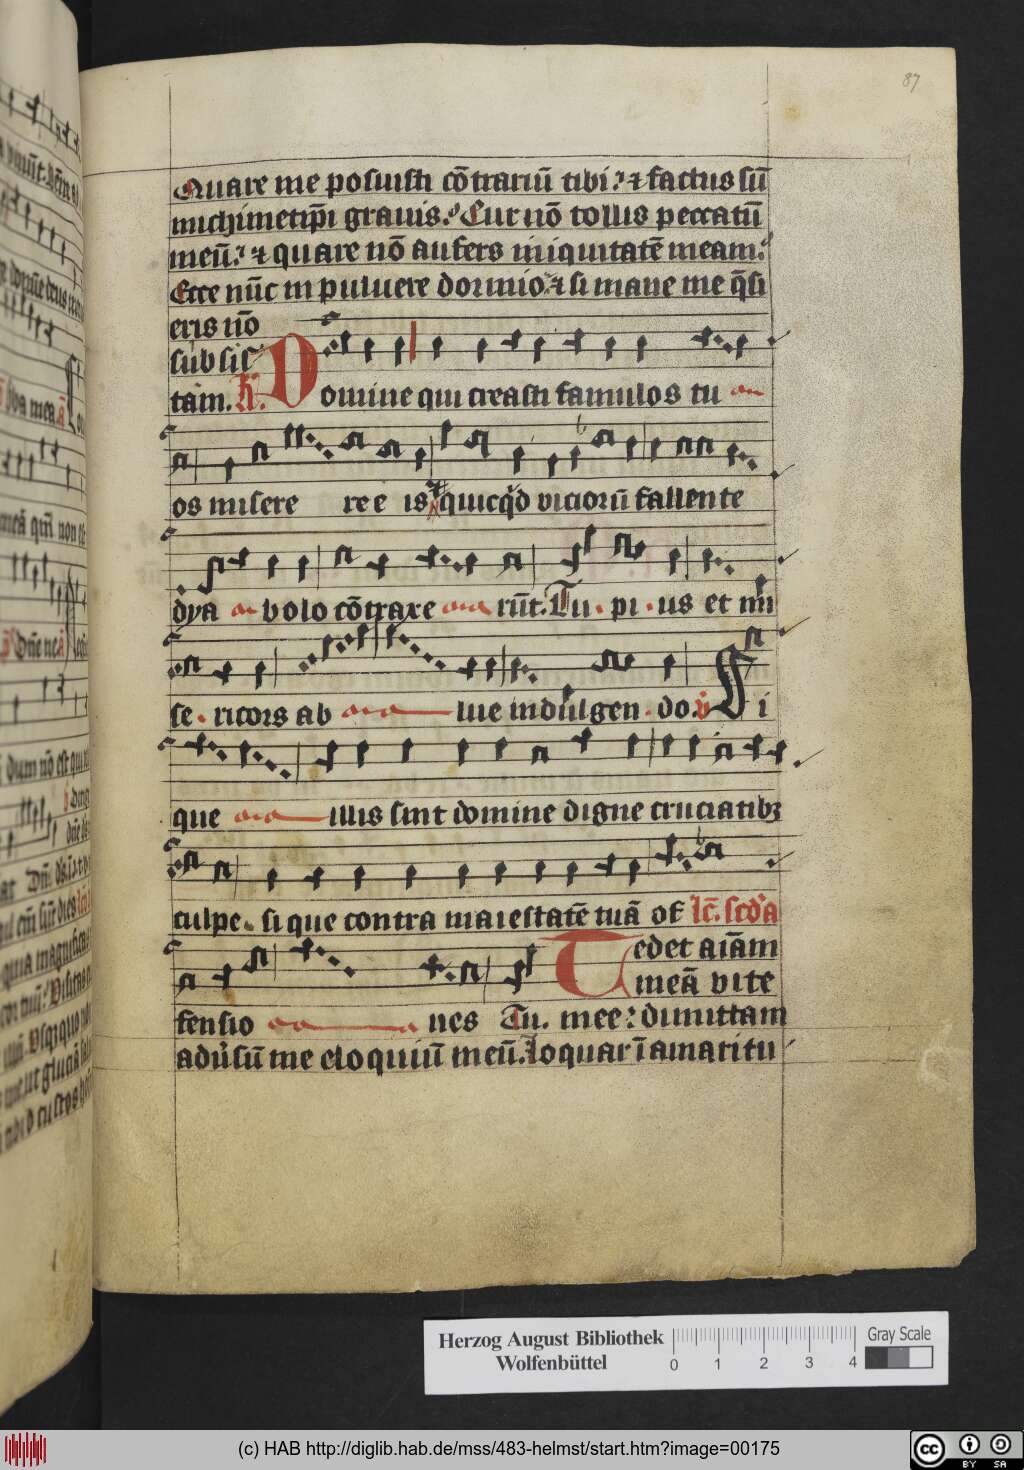 87
Quare me posuisti cõtrariũ tibi? ⁊ factus sũ
michimetip̃i grauis.? Cur nõ tollis peccatũ
meũ? ⁊ quare nõ aufers iniquitatẽ meam?
Ecce nũc in puluere dormio ⁊ si mane me q̃si
eris nõ
subsis
tam. R̃. Domine qui creasti famulos tu
os misere re e is quicq̃d viciorũ fallente
dya bolo cõtraxe rũt. Tu. pi. us et mi
se. ricors ab lue indulgen. do. v̓ Si
que illis sint domine digne cruciatibꝫ
culpe. si que contra maiestatẽ tuã of lc̃. scd'a
Tedet aiãm
meã vite
fensio nes Tu. mee: dimittam
adu̓sũ me eloquiũ meũ. loquar ĩ amaritu
Herzog August Bibliothek
Wolfenbüttel
0 1 2 3 4
Gray Scale
(c) HAB http://diglib.hab.de/mss/483-helmst/start.htm?image=00175
cc BY SA